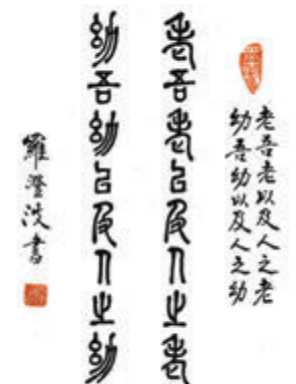 老吾老以及人之老
幼吾幼以及人之幼
老吾老㠯及人之老
幼吾幼㠯及人之幼
羅澄波書